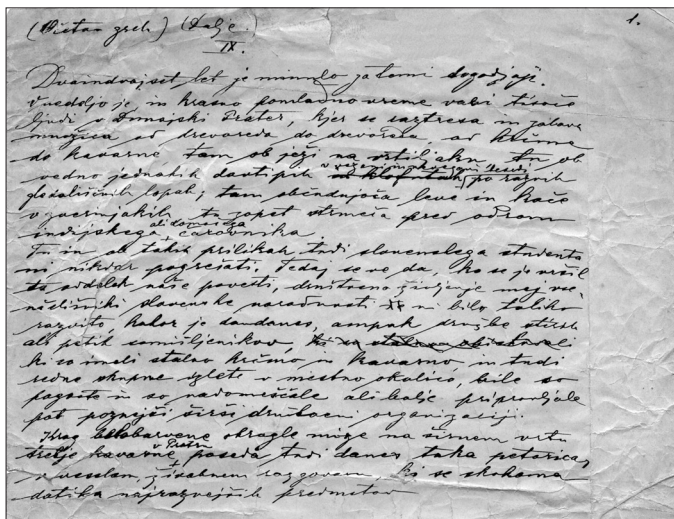 (Očetov greh) (Dalje.) 1.
IX.
Dvaindvajset let je minulo za temi dogodjaji.
V nedeljo je, in krasno pomladno vreme vabi tisoče
ljudi v dunajski Prater, kjer se raztresa in zabava
množica od drevoreda do drevoreda, od krčme
do kavarne tam ob ježi na vrtiljaku, tu ob
vedno jednakih dovtipih po raznih
gledališčnih lopah; tam občudujoča leve in kače
v zverinjakih, tu zopet strmeča pred odrom
indijskega ali domačega čarovnika.
Tu in ob takih prilikah, tudi slovenskega študenta
ni nikdar pogrešati. Tedaj seve da, ko se je vršil
ta oddelek naše povesti, društveno življenje mej vse-
učiliščniki slovenske narodnosti ni bilo toliko
razvito, kakor je dandanes, ampak družbe štirih
ali petih somišljenikov,
ki so imeli stalno krčmo in kavarno, in tudi
redne skupne izlete v mestno okolico, bile so
pogoste in so nadomeščale ali bolje pripravljale
pot poznejši širši društveni organizaciji.
Krog okrogle mize na širnem vrtu
tretje kavarne v Pratru poseda tudi danes taka petorica
v veselem, zabavnem razgovoru, ki se skokoma
dotika najrazvejših predmetov